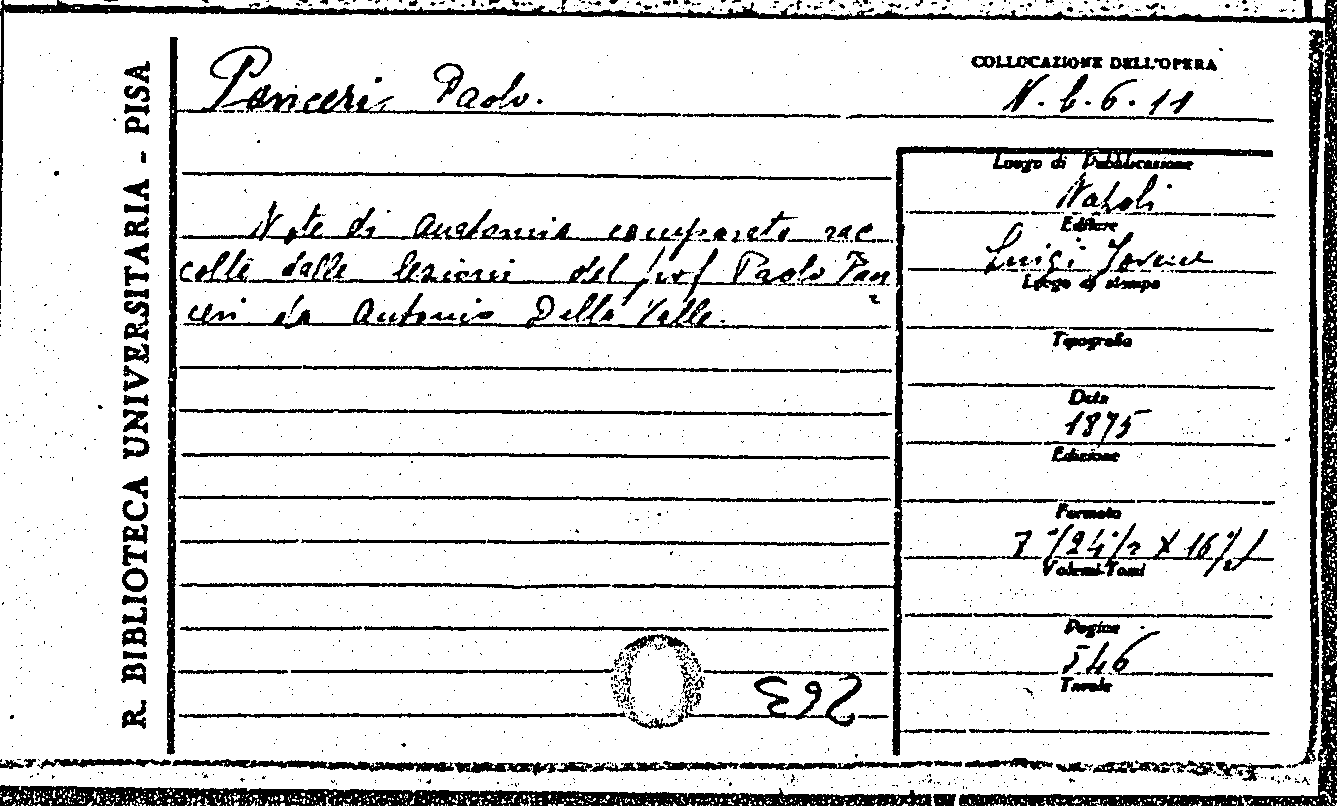 R. BIBLIOTECA UNIVERSITARIA - PISA
Panceri Paolo.
COLLOCAZIONE DELL'OPERA
N. b. 6. 11
Note di anatomia comparata rac
colte dalle lezioni del prof Paolo Pan
ceri da Antonio Della Valle.
Luogo di Pubblicazione
Napoli
Editore
Luigi Jovene
Luogo di stampa
Tipografia
Data
1875
Edizione
Formato
24 1/2 X 16 1/2
Volumi-Tomi
Pagine
546
Tavole
263